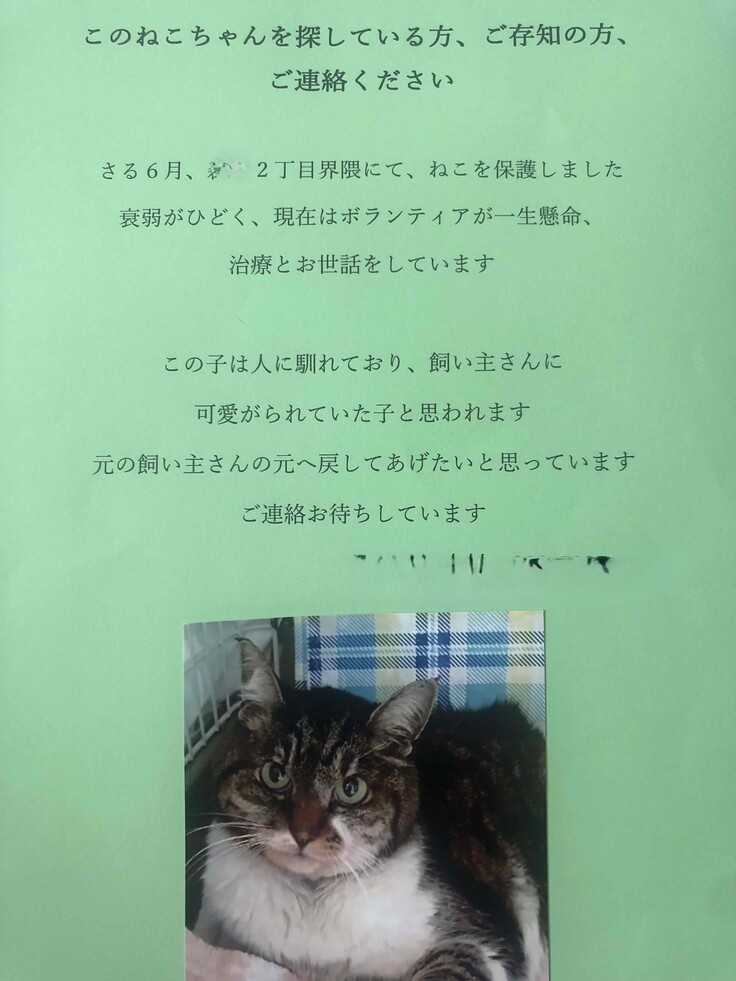 このねこちゃんを探している方、ご存知の方、
ご連絡ください
さる６月、 ２丁目界隈にて、ねこを保護しました
衰弱がひどく、現在はボランティアが一生懸命、
治療とお世話をしています
この子は人に馴れており、飼い主さんに
可愛がられていた子と思われます
元の飼い主さんの元へ戻してあげたいと思っています
ご連絡お待ちしています